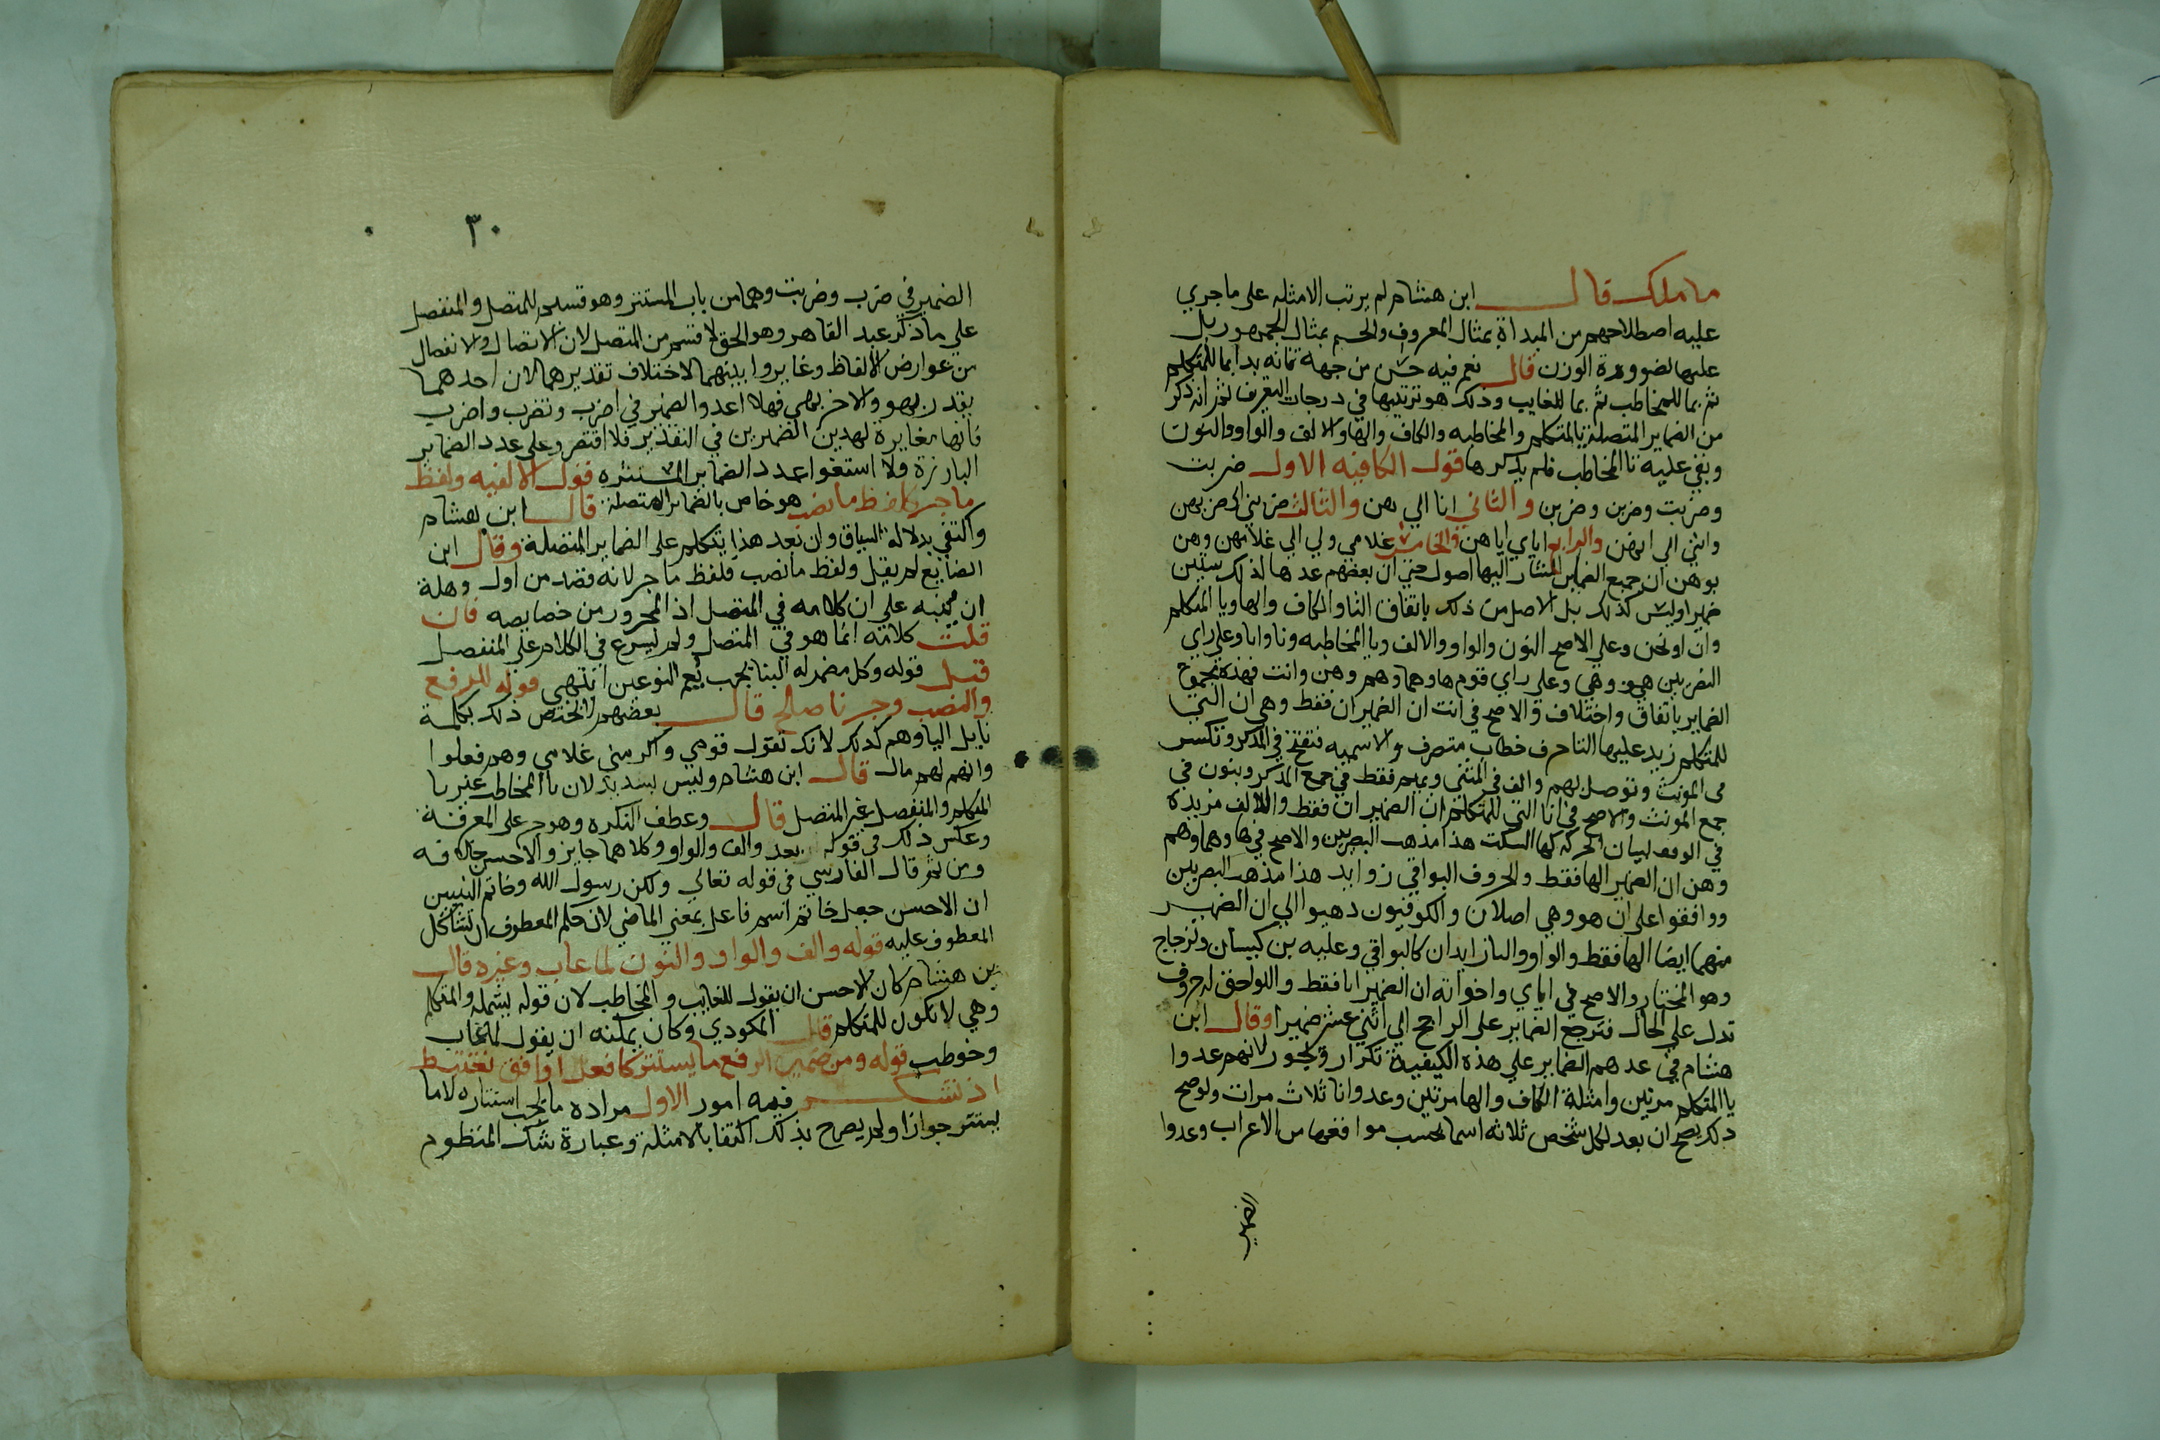 ما ملك قال ابن هشام لم يرتب الامثله على ماجري
عليه اصطلاحهم من المبداة بمثال المعروف والختم بمثال المجهور بل
عليها لضرورة الوزن قال نعم فيه حسن من جهة ثانه بدا بما للمتكلم
ثم بما للمخاطب ثم بما للغايب وذلك هو ترتيبها في درجات التعريف ثم انه ذكر
من الضماير المتصلة يا المتكلم والمخاطبه والكاف والها والالف والواو والنون
وبقي عليه تا المخاطب فلم يذكرها قول الكافيه الاول ضربت
وضربت وضربن وضربن والثاني انا الي هن والثالث ضربني الى ضربهن
وانني الى انهن والرابع اياي اياهن والخامس غلامي ولي الي غلامهن ولهن
يوهن ان جميع الضماير المشار اليها اصول حتي ان بعضهم عدها لذلك ستين
ضميرا وليس كذلك بل الاصل من ذلك باتفاق التا والكاف والها ويا المتكلم
وانا ونحن وعلى الاصح النون والواو والالف ويا المخاطبه ونا وايا وعلى راي
البصريين هو وهي وعلى راي قوم ها وهما وهم وهن وانت فهذه مجموع
الضماير باتفاق واختلاف والاصح في انت ان الضمير ان فقط وهي ان التي
للمتكلم زيد عليها التا حرف خطاب متصرف والاسميه فتفتح في المذكر وتكسر
في المونث وتوصل بميم والف في المثني وبميم فقط في جمع المذكر وبنون في
جمع المونث والاصح في انا التي للمتكلم ان الضمير ان فقط والالف مزيدة
في الوقف لبيان الحركة كها السكت هذا مذهب البصريين والاصح في ها وهما وهم
وهن ان الضمير الها فقط والحروف البواقي زوايد هذا مذهب البصريين
ووافقوا على ان هو وهي اصلان والكوفيون ذهبوا الي ان الضمير
منهما ايضا الها فقط والواو واليا زايدان كالبواقي وعليه بن كيسان والزجاج
وهو المختار والاصح في اياي واخواته ان الضمير ايا فقط واللواحق له حروف
تدل على الحال فترجع الضماير على الراجح الي اثني عشر ضميرا وقال ابن
هشام في عدهم الضماير علي هذه الكيفية تكرار وتجوز لانهم عدوا
يا المتكلم مرتين وامثلة الكاف والها مرتين وعدوا نا ثلاث مرات ولوصح
ذلك يصح ان يعد لكل شخص ثلاثه اسما بحسب مواقعها من الاعراب وعدوا
الضمير
٣٠
الضمير في ضرب وضربت وهما من باب المستتر وهو قسيم للمتصل والمنفصل
علي ما ذكر عبد القاهر وهو الحق لا قسم من المتصل لان الاتصال والانفصال
من عوارض الالفاظ وغايروا بينهما لاختلاف تقديرهما لان احدهما
يقدر بهو والاخر بهي فهلا اعدوا الضمير في اضرب ونضرب واضرب
فانها مغايرة لهذين الضميرين في التقدير فلا اقتصروا على عدد الضماير
البارزة ولا استغوا عدد الضماير المستتره قول الالفيه ولفظ
ما جر كلفظ ما نصب هو خاص بالضماير المتصلة قال ابن هشام
واكتفي بدلالة السياق وان بعد هذا يتكلم على الضماير المنفصلة وقال ابن
الضايع لم يقل ولفظ ما نصب فلفظ ما جر لانه قصد من اول وهلة
ان ينبه علي ان كلامه في المتصل اذ المجرور من خصايصه فان
قلت كلامه انما هو في المتصل ولم يشرع في الكلام على المنفصل
قيل قوله وكل مضمر له البنا يجب يعم النوعين انتهي قوله للرفع
والنصب وجر نا صلح قال بعضهم لا يختص ذلك بكلمة
نا بل اليا وهم كذلك لانك تقول قومي واكرمني غلامي وهم فعلوا
وانهم لهم مال قال ابن هشام وليس بسديد لان يا المخاطبه غير يا
المتكلم والمنفصل غير المتصل قال وعطف النكره وهو جر على المعرفة
وعكس ذلك في قوله بعد والف والواو وكلاهما جايز والاحسن خلافه
ومن ثم قال الفارسي في قوله تعالي ولكن رسول الله وخاتم النبيين
ان الاحسن جعل خاتم اسم فاعل بمعني الماضي لان حكم المعطوف ان يشاكل
المعطوف عليه قوله والف والواو والنون لما غاب وغيره قال
بن هشام كان الاحسن ان يقول للغايب والمخاطب لان قوله يشمله والمتكلم
وهي لا تكون للمتكلم قال المكودي وكان يمكنه ان يقول لما غاب
وخوطب قوله ومن ضمير الرفع ما يستتر كافعل اوافق نغتبط
اذ تشكر فيه امور الاول مراده ما يجب استتاره لا ما
يستتر جوازا ولم يصرح بذلك اكتفا بالامثلة وعبارة شك المنظوم